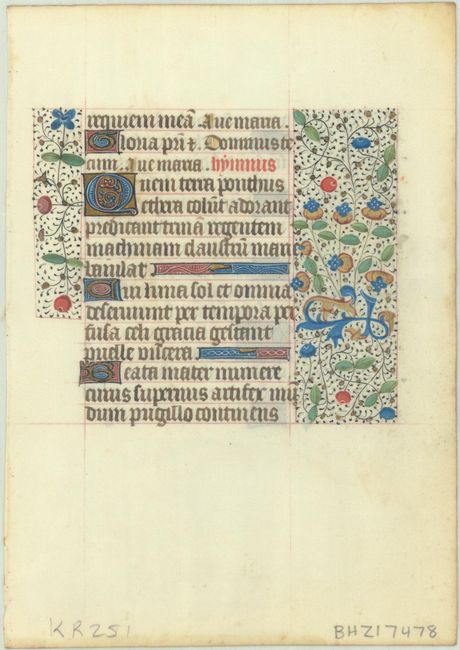 requiem meā. Aue maria.
Gloria pr̄i ⁊. Dominus te
cum. Aue maria. hympnus
Quem terra ponthus
ethera colūt adorant
predicant trinā regentem
machinam claustrū marie
baiulat
Cui luna sol et omnia
deseruiunt per tempora per
fusa celi gracia gestant
puelle viscera
Beata mater munere
cuius supernus artifex mū
dum pugillo continens
KR251
BHZ17478